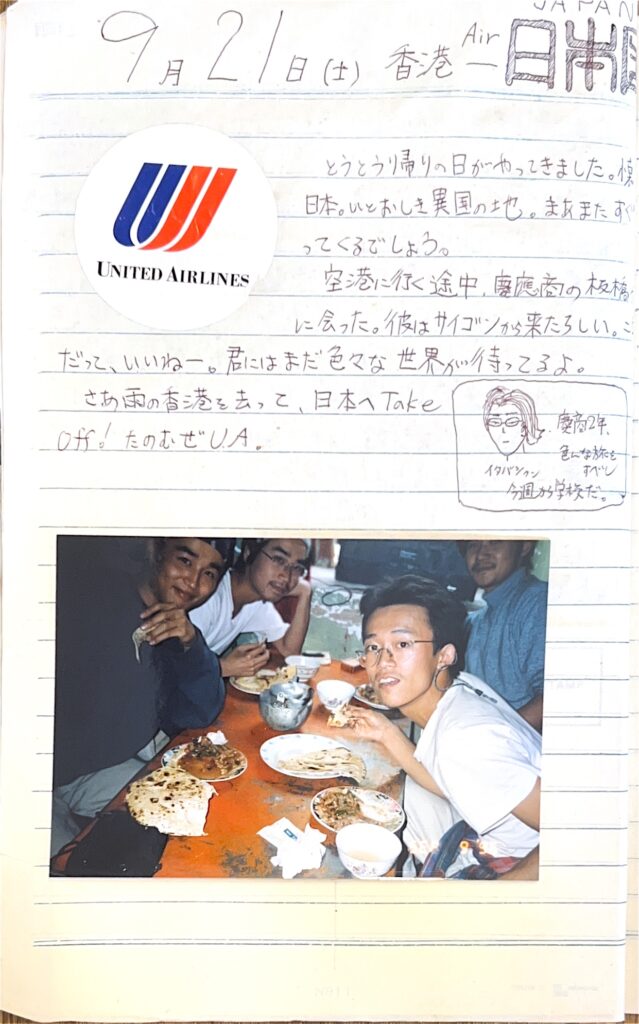 JAPAN
9月21日(土) 香港 Air 日本
UNITED AIRLINES
とうとう帰りの日がやってきました。
日本。いとおしき異国の地。まあまたすぐ
ってくるでしょう。
空港に行く途中、慶應商の板橋
に会った。彼はサイゴンから来たらしい。こ
だって、いいねー。君にはまだ色々な世界が待ってるよ。
さあ雨の香港を去って、日本へTake
Off! たのむぜU.A.
慶商2年、
色んな旅を
すべし
イタバシクン
今週から学校だ。